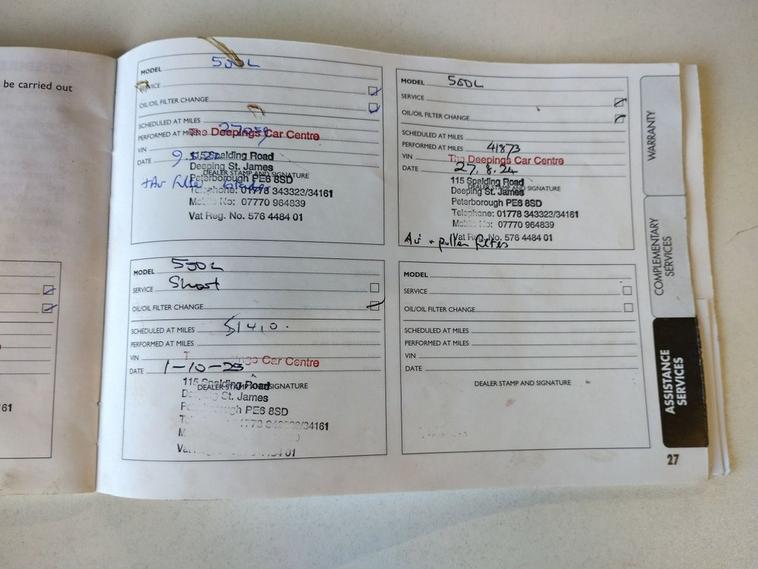 be carried out
MODEL 500L
SERVICE
OIL/OIL FILTER CHANGE
SCHEDULED AT MILES
PERFORMED AT MILES
The Deepings Car Centre
VIN
DATE
115 Spalding Road
Deeping St. James
DEALER STAMP AND SIGNATURE
Peterborough PE6 8SD
Telephone: 01778 343322/34161
Mobile No: 07770 964839
Vat Reg. No. 576 4484 01
MODEL 500L
SERVICE
OIL/OIL FILTER CHANGE
SCHEDULED AT MILES
PERFORMED AT MILES 41873
VIN
The Deepings Car Centre
DATE 27.8.24
115 Spalding Road
Deeping St. James
DEALER STAMP AND SIGNATURE
Peterborough PE6 8SD
Telephone: 01778 343322/34161
Mobile No: 07770 964839
Vat Reg. No. 576 4484 01
Air + pollen filters
MODEL 500L
SERVICE Short
OIL/OIL FILTER CHANGE
SCHEDULED AT MILES 51410.
PERFORMED AT MILES
VIN
Car Centre
DATE 1-10-25
115 Spalding Road
DEALER STAMP AND SIGNATURE
Deeping St. James
PE6 8SD
MODEL
SERVICE
OIL/OIL FILTER CHANGE
SCHEDULED AT MILES
PERFORMED AT MILES
VIN
DATE
DEALER STAMP AND SIGNATURE
WARRANTY
COMPLEMENTARY
SERVICES
ASSISTANCE
SERVICES
27
61